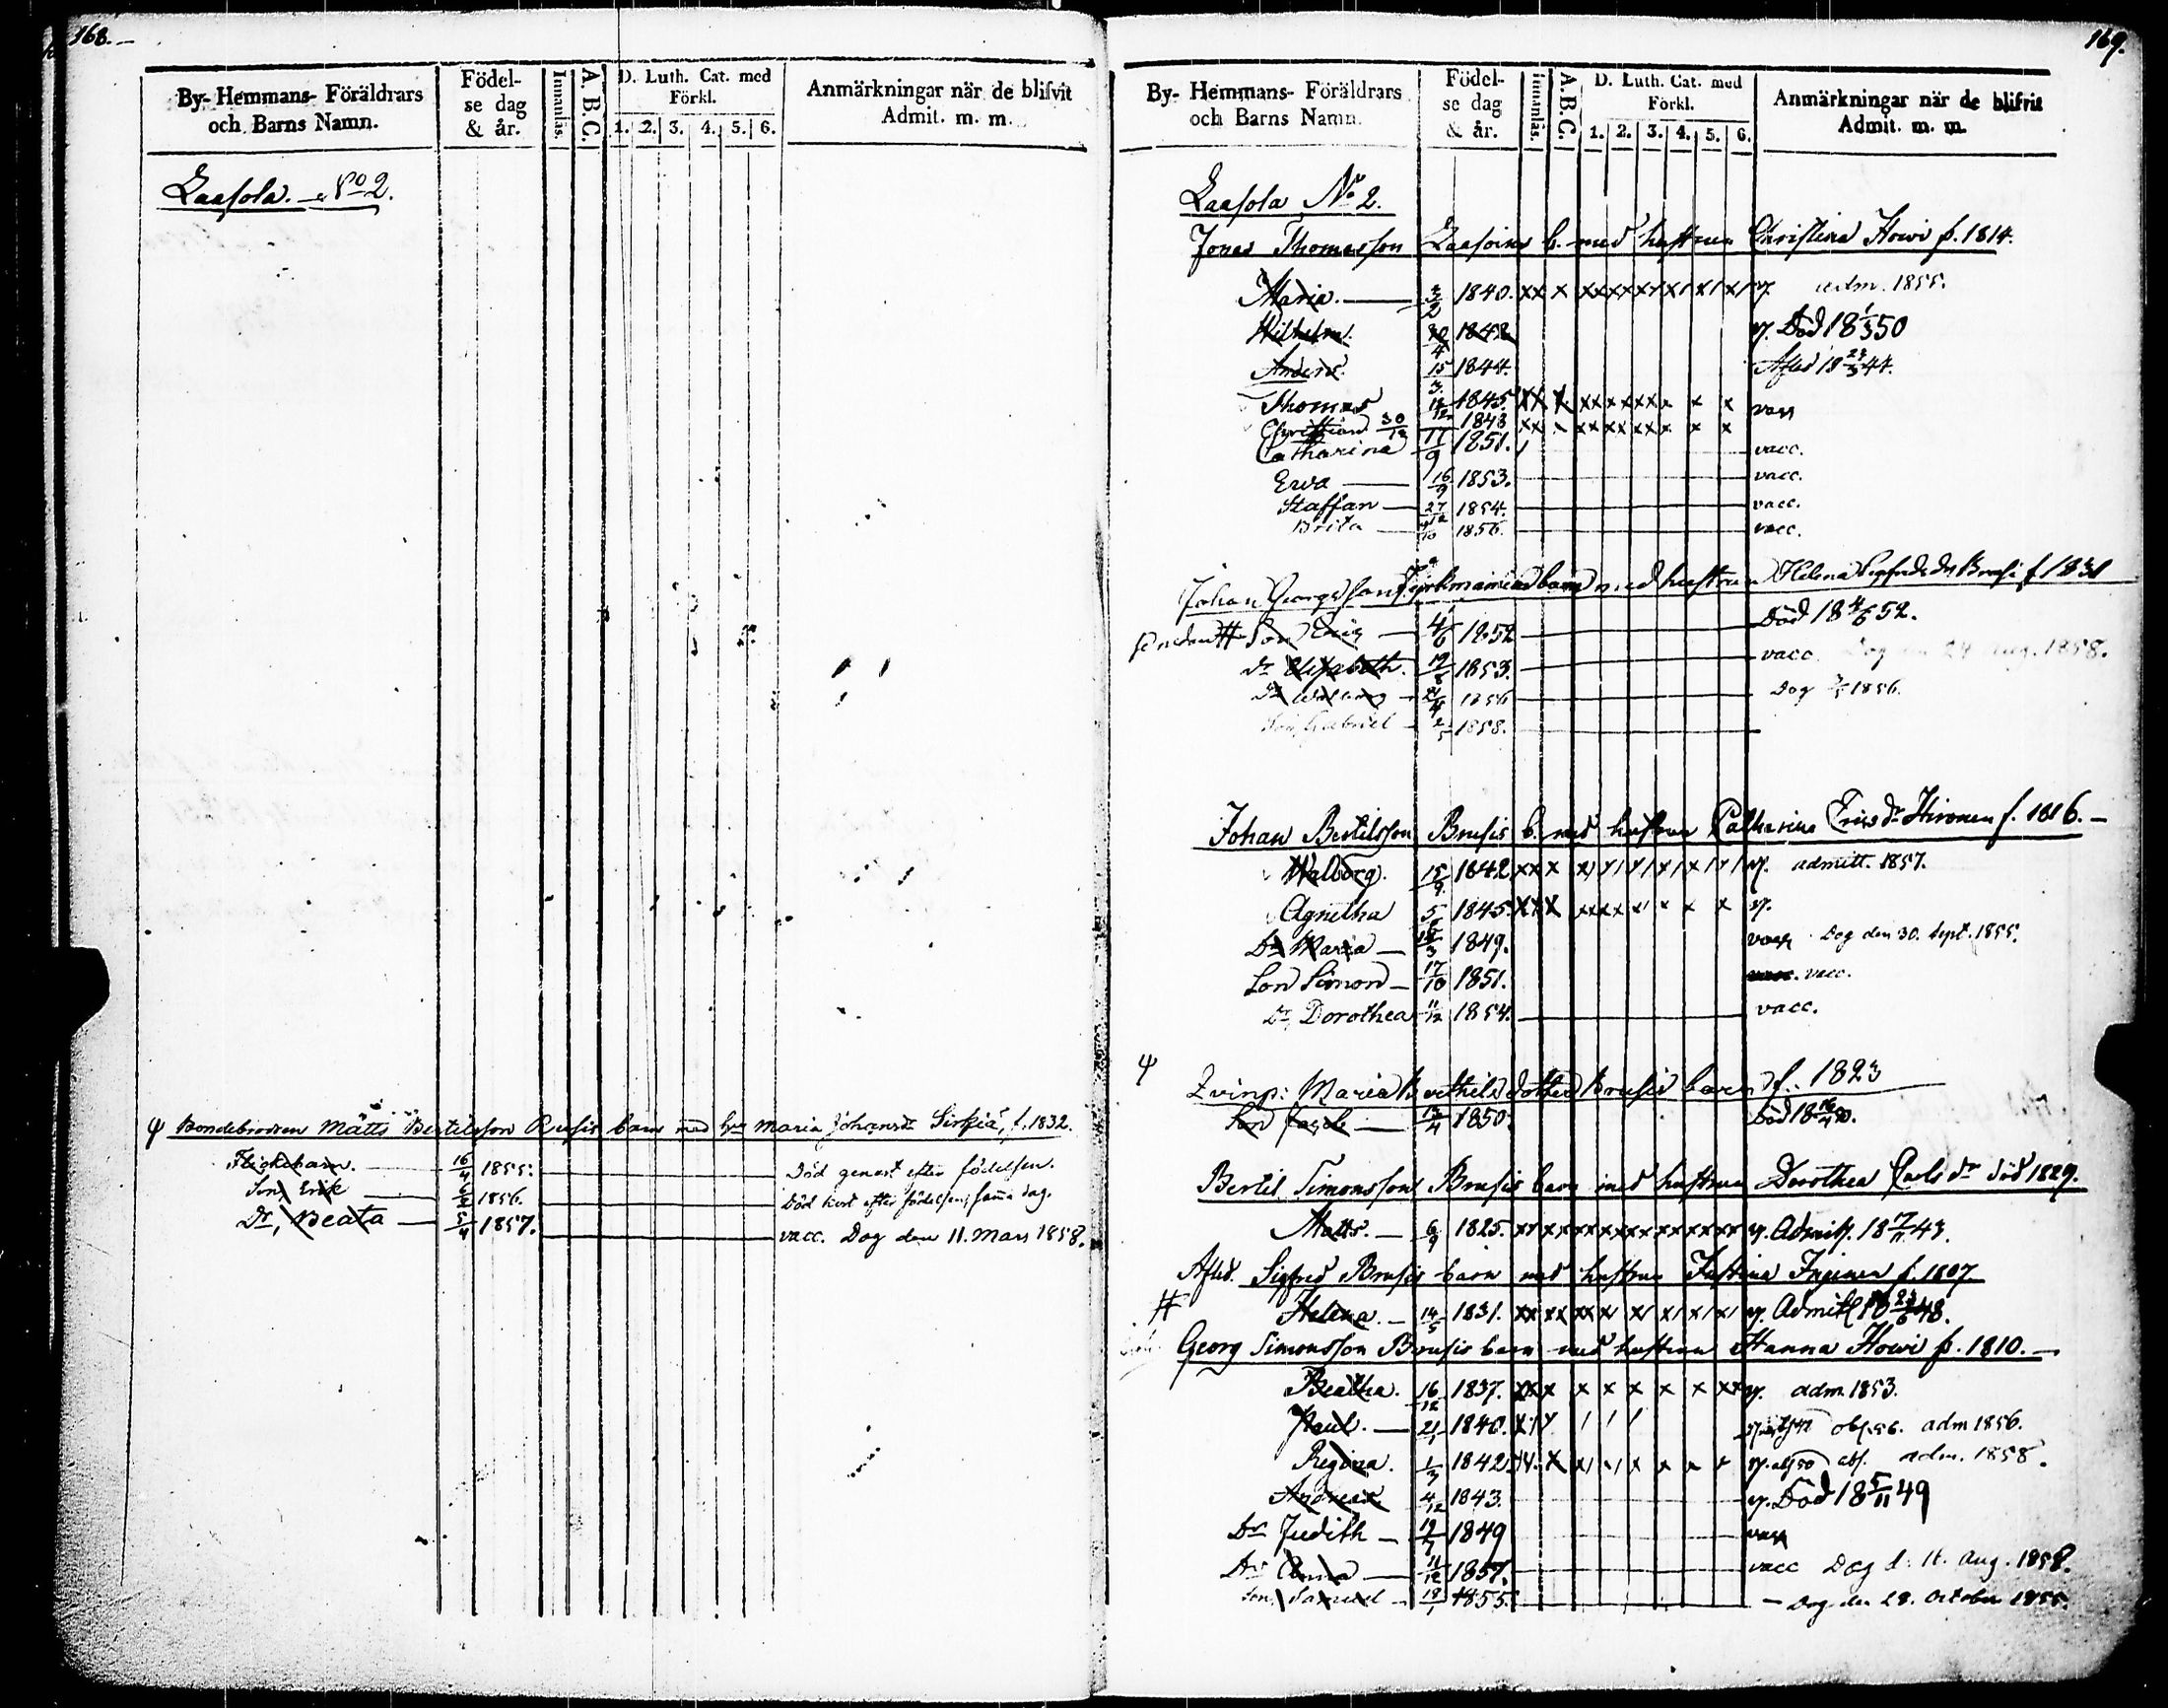 168.
By- Hemmans- Föräldrars och Barns Namn.
Födel- se dag & år.
Innanläs.
A. B. C.
D. Luth. Cat. med Förkl.
1. 2. 3. 4. 5. 6.
Anmärkningar när de blifvit Admit. m. m.
Laasola. No 2.
ψ Bondebrodren Matts Bertilsson Brusis barn med hu Maria Johansdr Sirkiä, f. 1832.
Flickebarn. 16/4 1855. Död genast efter födelsen.
Son, Erik 1856. Död kort efter födelsen, samma dag.
Dr, Beata 5/4 1857. vacc. Dog den 11. Mars 1858.
169.
By- Hemmans- Föräldrars och Barns Namn.
Födel- se dag & år.
Innanläs.
A. B. C.
D. Luth. Cat. med Förkl.
1. 2. 3. 4. 5. 6.
Anmärkningar när de blifvit Admit. m. m.
Laasola No 2.
Jonas Thomasson Laasoins b. med hustrun Christina Howi f. 1814.
Maria. 1840. xx x xx xx xx x x x v. adm. 1855.
Wilhelm. 1842 v. Död 18 1/3 50
Anders. 15/3 1844. Afled 18 23/3 44.
Thomas 1845. xx x xx x x x x x x x vacc
Christian 30/12 1843 xx x x x x x x x x x
Catharina 17/9 1851. vacc.
Ewa 16/9 1853. vacc.
Staffan 27/12 1854. vacc.
Brita 1856. vacc.
Johan Georgsson barn med hustrun Helena Sigfrids dr Brusi f 1831
# Son Eric 4/6 1852 Död 18 4/6 52.
dr Elisabeth. 1853. vacc. Dog den 24 Aug. 1858.
Dr Walborg 1856 Dog 1856.
Son Gabriel 2/5 1858.
Johan Bertilsson Brusis b. med hustrun Catharina Erics dr Hironen f. 1816.
Walborg. 15/9 1842 xx x x x x x x x v. admitt. 1857.
Agnetha 5/6 1845 xx x xx xx x x x x v.
Dr Maria 1849. vacc Dog den 30. Sept. 1855.
Son Simon 17/10 1851. vacc. vacc.
Dr Dorothea 11/12 1854. vacc.
ψ
Qvinsp: Maria Berthils dotter Brusis barn f. 1823
Son Jacob 1850. Död 18 16/4 50.
Bertil Simonsson Brusis barn med hustrun Dorothea Carls dr död 1829.
Matts. 6/9 1825. xx xx xx xx xx xx xx v. Admitt. 18 7/11 43.
Afled. Sigfred Brusis barn med hustrun Justina Inginen f. 1807.
# Helena. 14/5 1831. xx xx xx x x x x x v. Admitt 18 23/6 48.
Georg Simonsson Brusis barn med hustrun Hanna Howi f. 1810.
Beatha. 16/12 1837. xx x x x x x x xx v. adm. 1853.
Paul. 21/1 1840. adm 1856.
Regina. 1/3 1842. adm. 1858.
Andreas 4/12 1843. v. Död 18 5/11 49
Dr Judith 1849 vacc
Dr Anna 11/12 1857. vacc Dog d. 11. Aug. 1858.
Son, Samuel 18/1 1855. Dog den 28. October 1855.